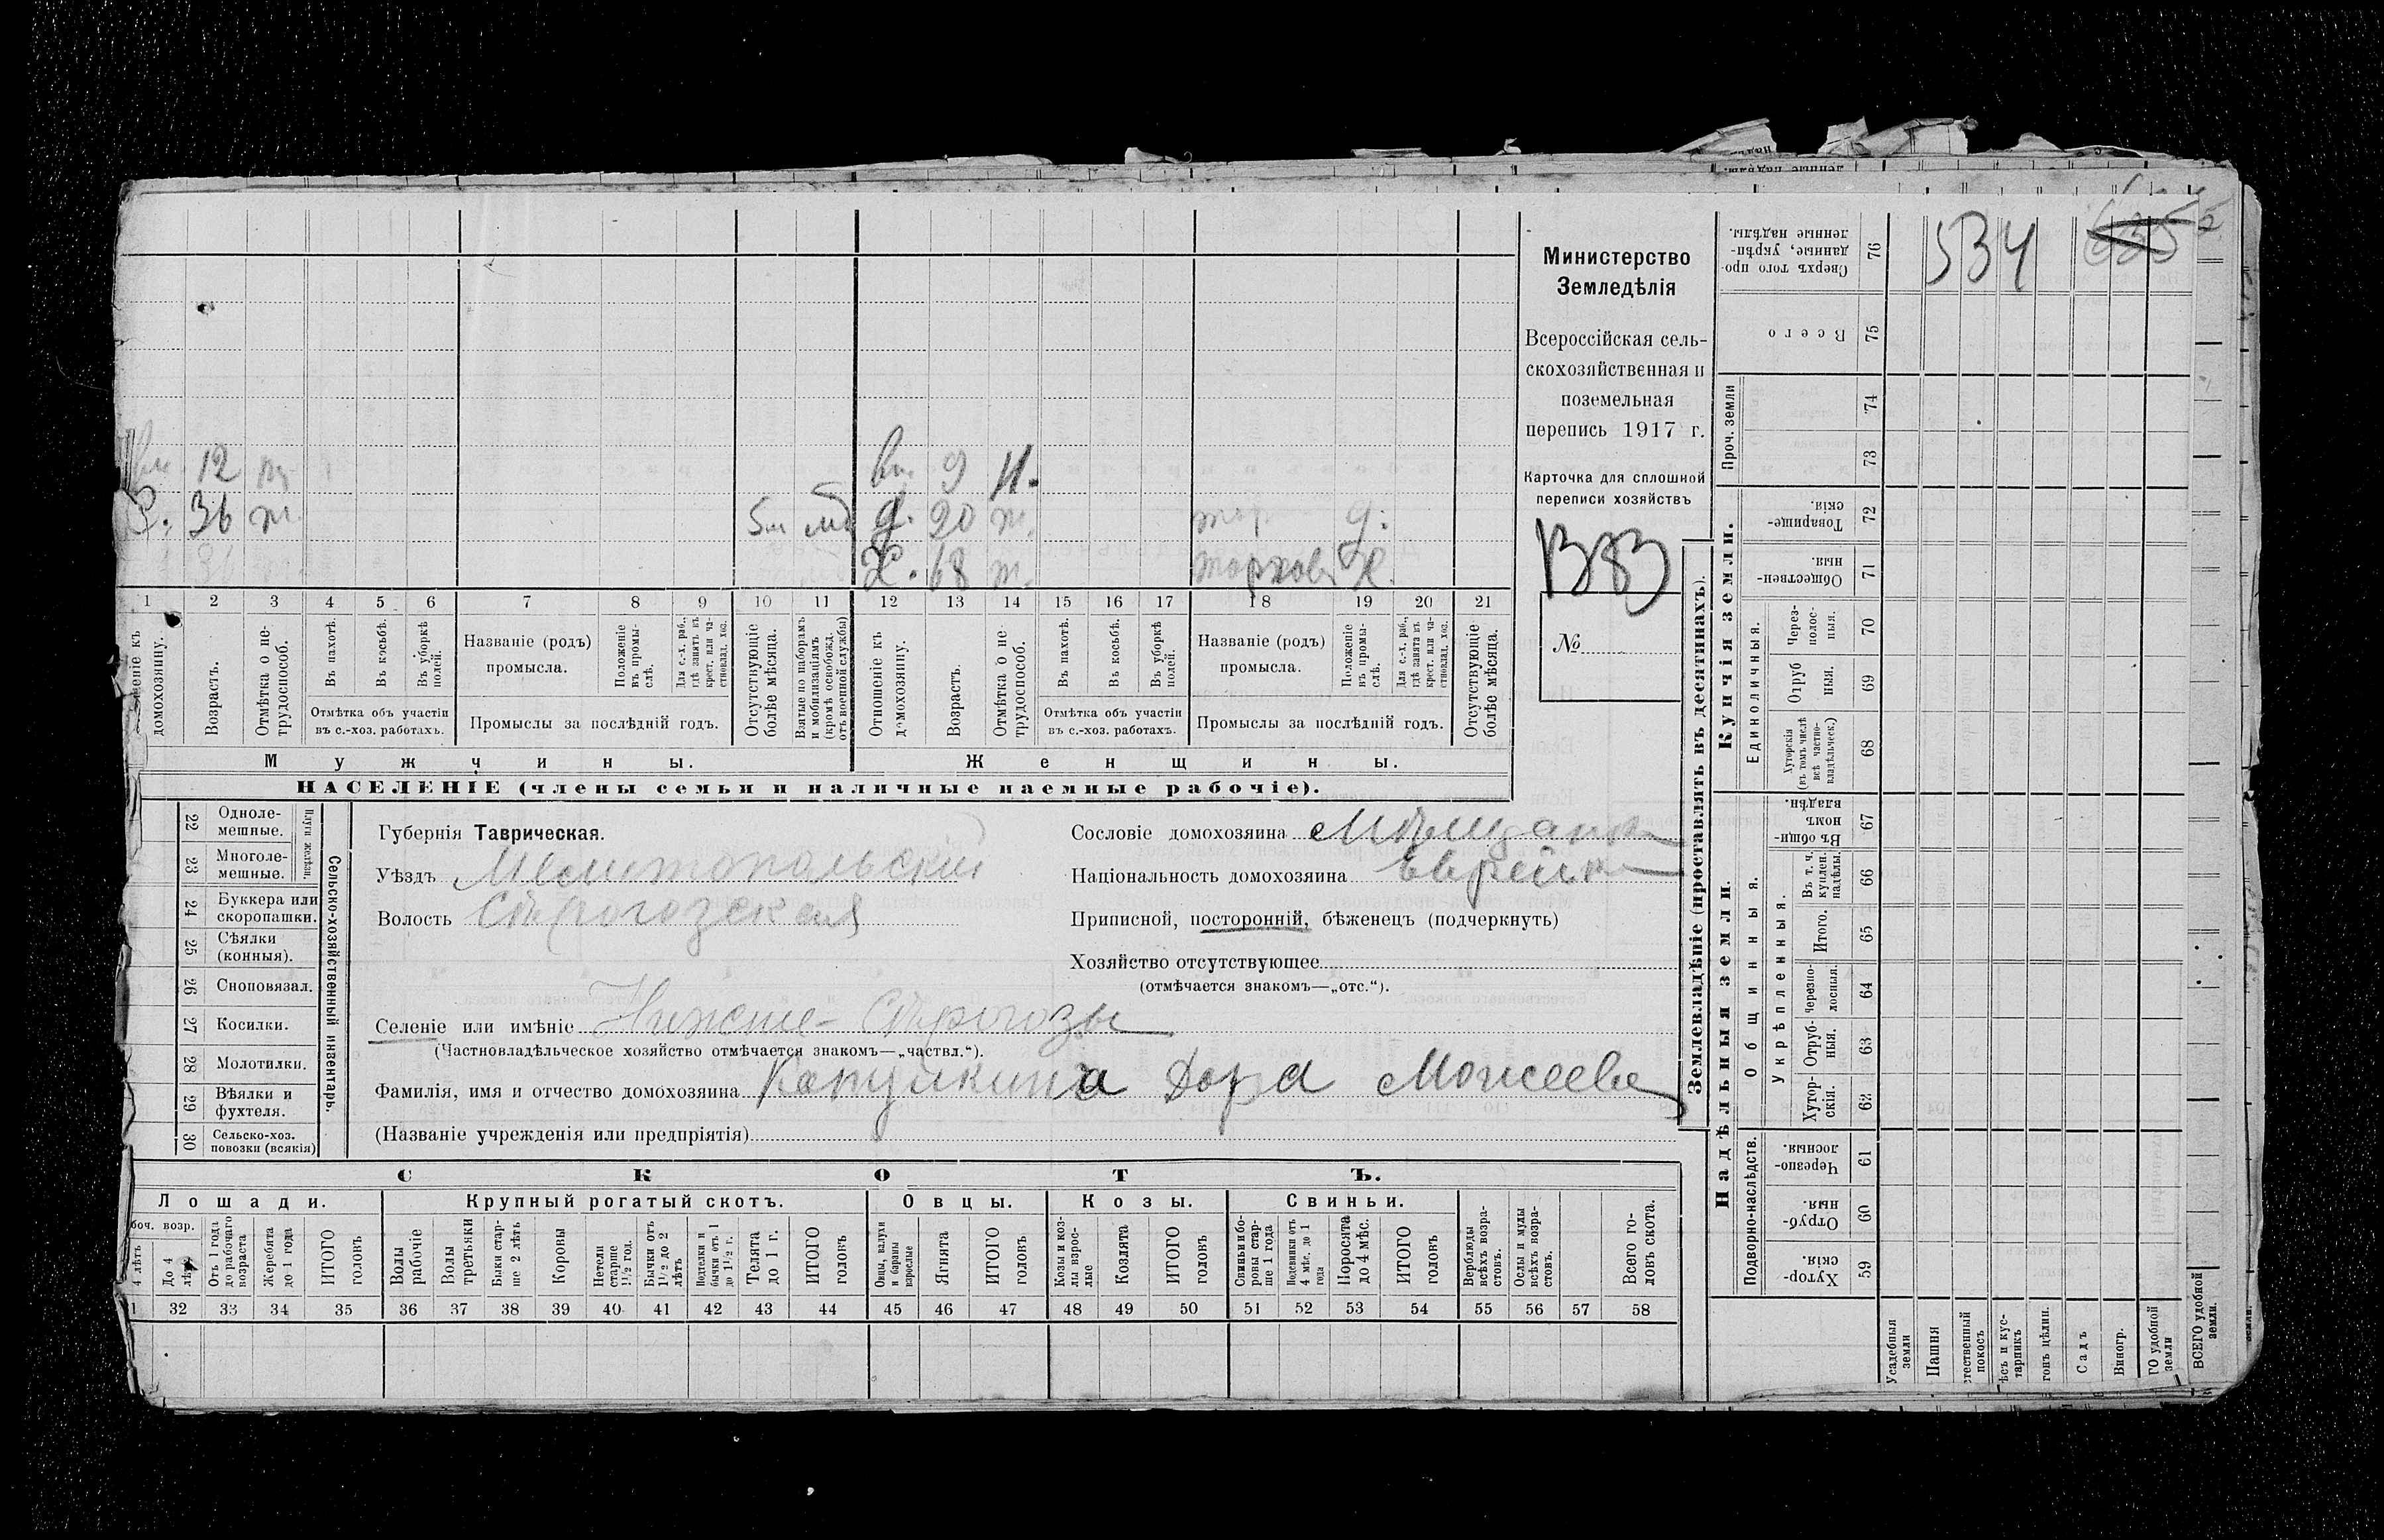 534
635
вн. 12
С. 36 т. 5 м мб
вн. 9 н.
д. 20 т. торг д.
Х. 68 т. торговл Х.
1 2 3 4 5 6 7 8 9 10 11 12 13 14 15 16 17 18 19 20 21
домохозяину.
Возрастъ.
Отмѣтка о нетрудоспособ.
Въ пахотѣ.
Въ косьбѣ.
Въ уборкѣ полей.
Отмѣтка объ участіи
въ с.-хоз. работахъ.
Названіе (родъ)
промысла.
Положеніе въ промыслѣ.
Для с.-х. раб., гдѣ занятъ въ крест. или частновлад. хоз.
Промыслы за послѣдній годъ.
Отсутствующіе болѣе мѣсяца.
Взятые по наборамъ и мобилизаціямъ (кромѣ освобожд. отъ военной службы)
Отношеніе къ домохозяину.
Возрастъ.
Отмѣтка о нетрудоспособ.
Въ пахотѣ.
Въ косьбѣ.
Въ уборкѣ полей.
Отмѣтка объ участіи
въ с.-хоз. работахъ.
Названіе (родъ)
промысла.
Положеніе въ промыслѣ.
Для с.-х. раб., гдѣ занята въ крест. или частновлад. хоз.
Промыслы за послѣдній годъ.
Отсутствующіе болѣе мѣсяца.
Мужчины.
Женщины.
НАСЕЛЕНІЕ (члены семьи и наличные наемные рабочіе).
Министерство
Земледѣлія
Всероссійская сель-
скохозяйственная и
поземельная
перепись 1917 г.
Карточка для сплошной
переписи хозяйствъ
№
22 Одноле-
мешные.
23 Многоле-
мешные.
Плуги желѣзн.
24 Буккера или
скоропашки.
25 Сѣялки
(конныя).
26 Сноповязал.
27 Косилки.
28 Молотилки.
29 Вѣялки и
фухтеля.
30 Сельско-хоз.
повозки (всякія)
Сельско-хозяйственный инвентарь.
Губернія Таврическая.
Уѣздъ Мелитопольский
Волость Сѣрогозская
Селеніе или имѣніе Нижние-Сѣрогозы
(Частновладѣльческое хозяйство отмѣчается знакомъ—„частвл.“).
Фамилія, имя и отчество домохозяина Капулкина Дора Моисеевна
(Названіе учрежденія или предпріятія)
Сословіе домохозяина Мѣщанка
Національность домохозяина еврейка
Приписной, посторонній, бѣженецъ (подчеркнуть)
Хозяйство отсутствующее
(отмѣчается знакомъ—„отс.“).
СКОТЪ.
Лошади.
боч. возр.
4 лѣтъ
До 4 лѣтъ
Отъ 1 года до рабочаго возраста
Жеребята до 1 года
ИТОГО головъ
Крупный рогатый скотъ.
Волы рабочіе
Волы третьяки
Быки старше 2 лѣтъ
Коровы
Нетели старше 1½ год.
Бычки отъ 1½ до 2 лѣтъ
Подтелки и бычки отъ 1 до 1½ г.
Телята до 1 г.
ИТОГО головъ
Овцы.
Овцы, валухи и бараны взрослые
Ягнята
ИТОГО головъ
Козы.
Козы и козлы взрослые
Козлята
ИТОГО головъ
Свиньи.
Свиньи и боровы старше 1 года
Подсвинки отъ 4 мѣс. до 1 года
Поросята до 4 мѣс.
ИТОГО головъ
Верблюды всѣхъ возрастовъ.
Ослы и мулы всѣхъ возрастовъ.
Всего головъ скота.
1 32 33 34 35 36 37 38 39 40 41 42 43 44 45 46 47 48 49 50 51 52 53 54 55 56 57 58
Землевладѣніе (проставлять въ десятинахъ).
Купчія земли.
Надѣльныя земли.
Сверхъ того проданные, укрѣпленные надѣлы. 76
Всего 75
Проч. земли
74
73
Товарищескія. 72
Общественныя. 71
Единоличныя.
Черезполосныя. 70
Отрубныя. 69
Хуторскія (въ томъ числѣ всѣ частновладѣльческ.) 68
Общинныя.
Въ общинномъ владѣн. 67
Укрѣпленныя.
Въ т. ч. куплен. надѣлы. 66
Итого. 65
Черезполосныя. 64
Отрубныя. 63
Хуторскія. 62
Подворно-наслѣдств.
Черезполосныя. 61
Отрубныя. 60
Хуторскія. 59
Усадебныя земли
Пашня
стественный покосъ
ѣсъ и кустарникъ
гонъ цѣлин.
Садъ
Виногр.
ГО удобной земли
ВСЕГО удобной земли.